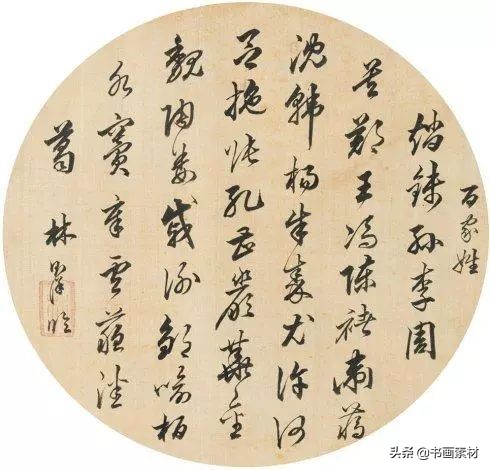 百家姓
趙錢孫李周
吳鄭王馮陳褚衛蔣
沈韓楊朱秦尤許何
呂施張孔曹嚴華金
魏陶姜戚謝鄒喻柏
水竇章雲蘇潘
葛 林
头条 @书画素材